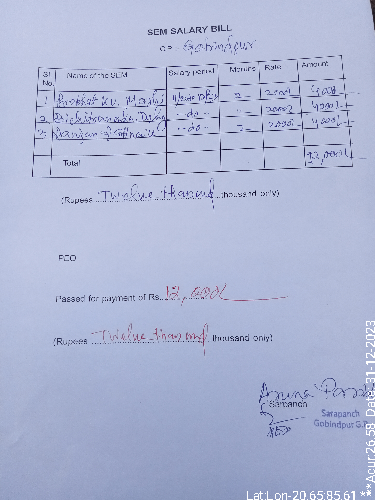 SEM SALARY BILL
GP - Gobindpur
Sl No. Name of the SEM Salary period Months Rate Amount
1 2 2000/ 4000/
2 -do- 2000/ 4000/
3 -do- 2 2000/ 4000/
Total 12,000/
(Rupees Twelve thousand thousand only)
PEO
Passed for payment of Rs. 12,000/
(Rupees Twelve thousand thousand only)
Sarpanch
Sarapanch
Gobindpur G.
Lat:Lon-20.65:85.61
***Acur:26.58 Date:31-12-2023